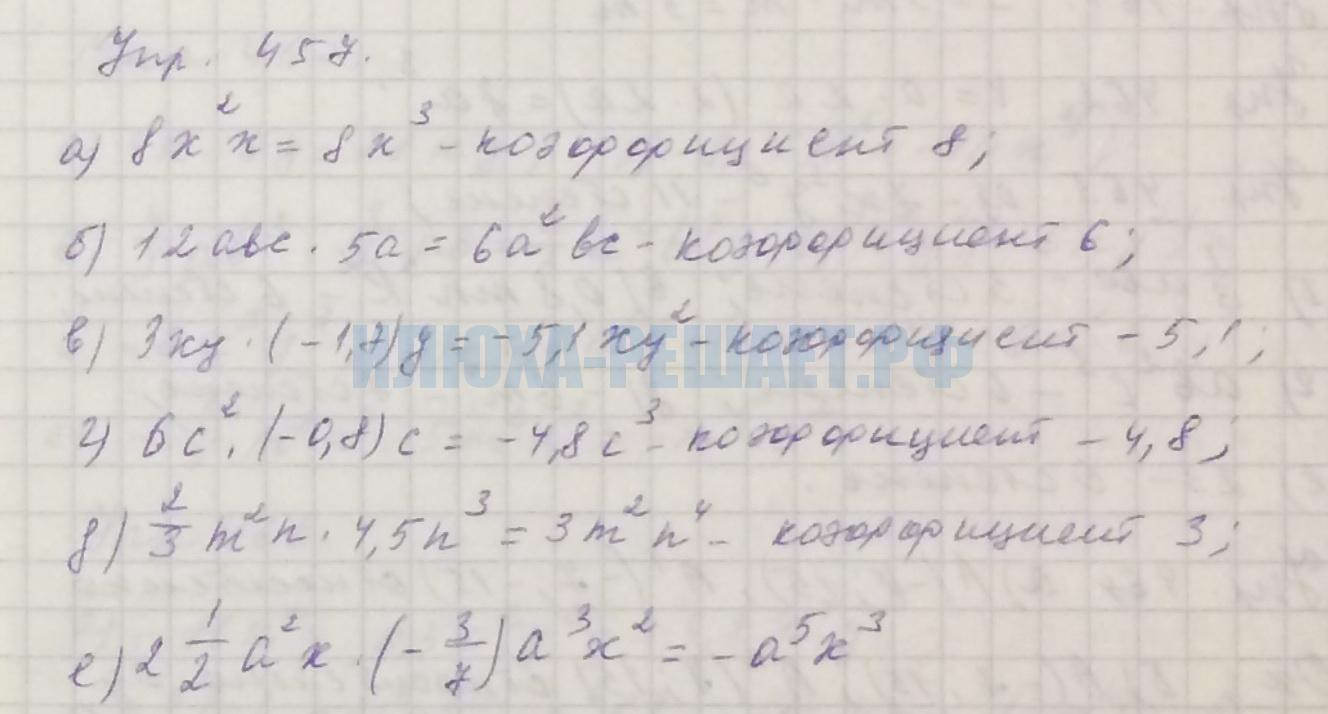 Упр. 457.
а) 8x²x = 8x³ - коэффициент 8;
б) 12abc · 5a = 6a²bc - коэффициент 6;
в) 3xy · (-1,7)y = -5,1xy² - коэффициент -5,1;
ИЛЮХА-РЕШАЕТ.РФ
г) 6c² · (-0,8)c = -4,8c³ - коэффициент -4,8;
д) 2/3 m²n · 4,5n³ = 3m²n⁴ - коэффициент 3;
е) 2 1/2 a²x · (- 3/7) a³x² = -a⁵x³